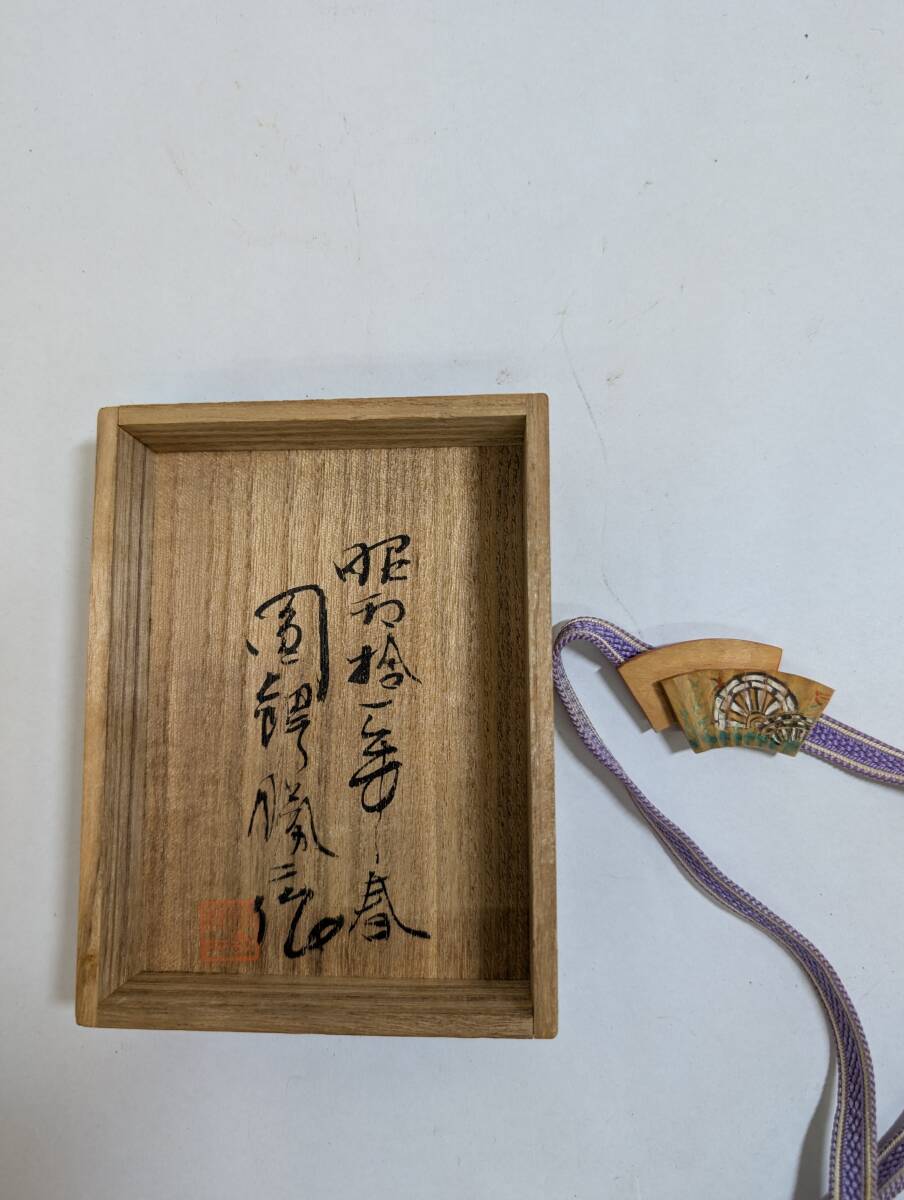 昭和拾一年春
圓鍔勝二作